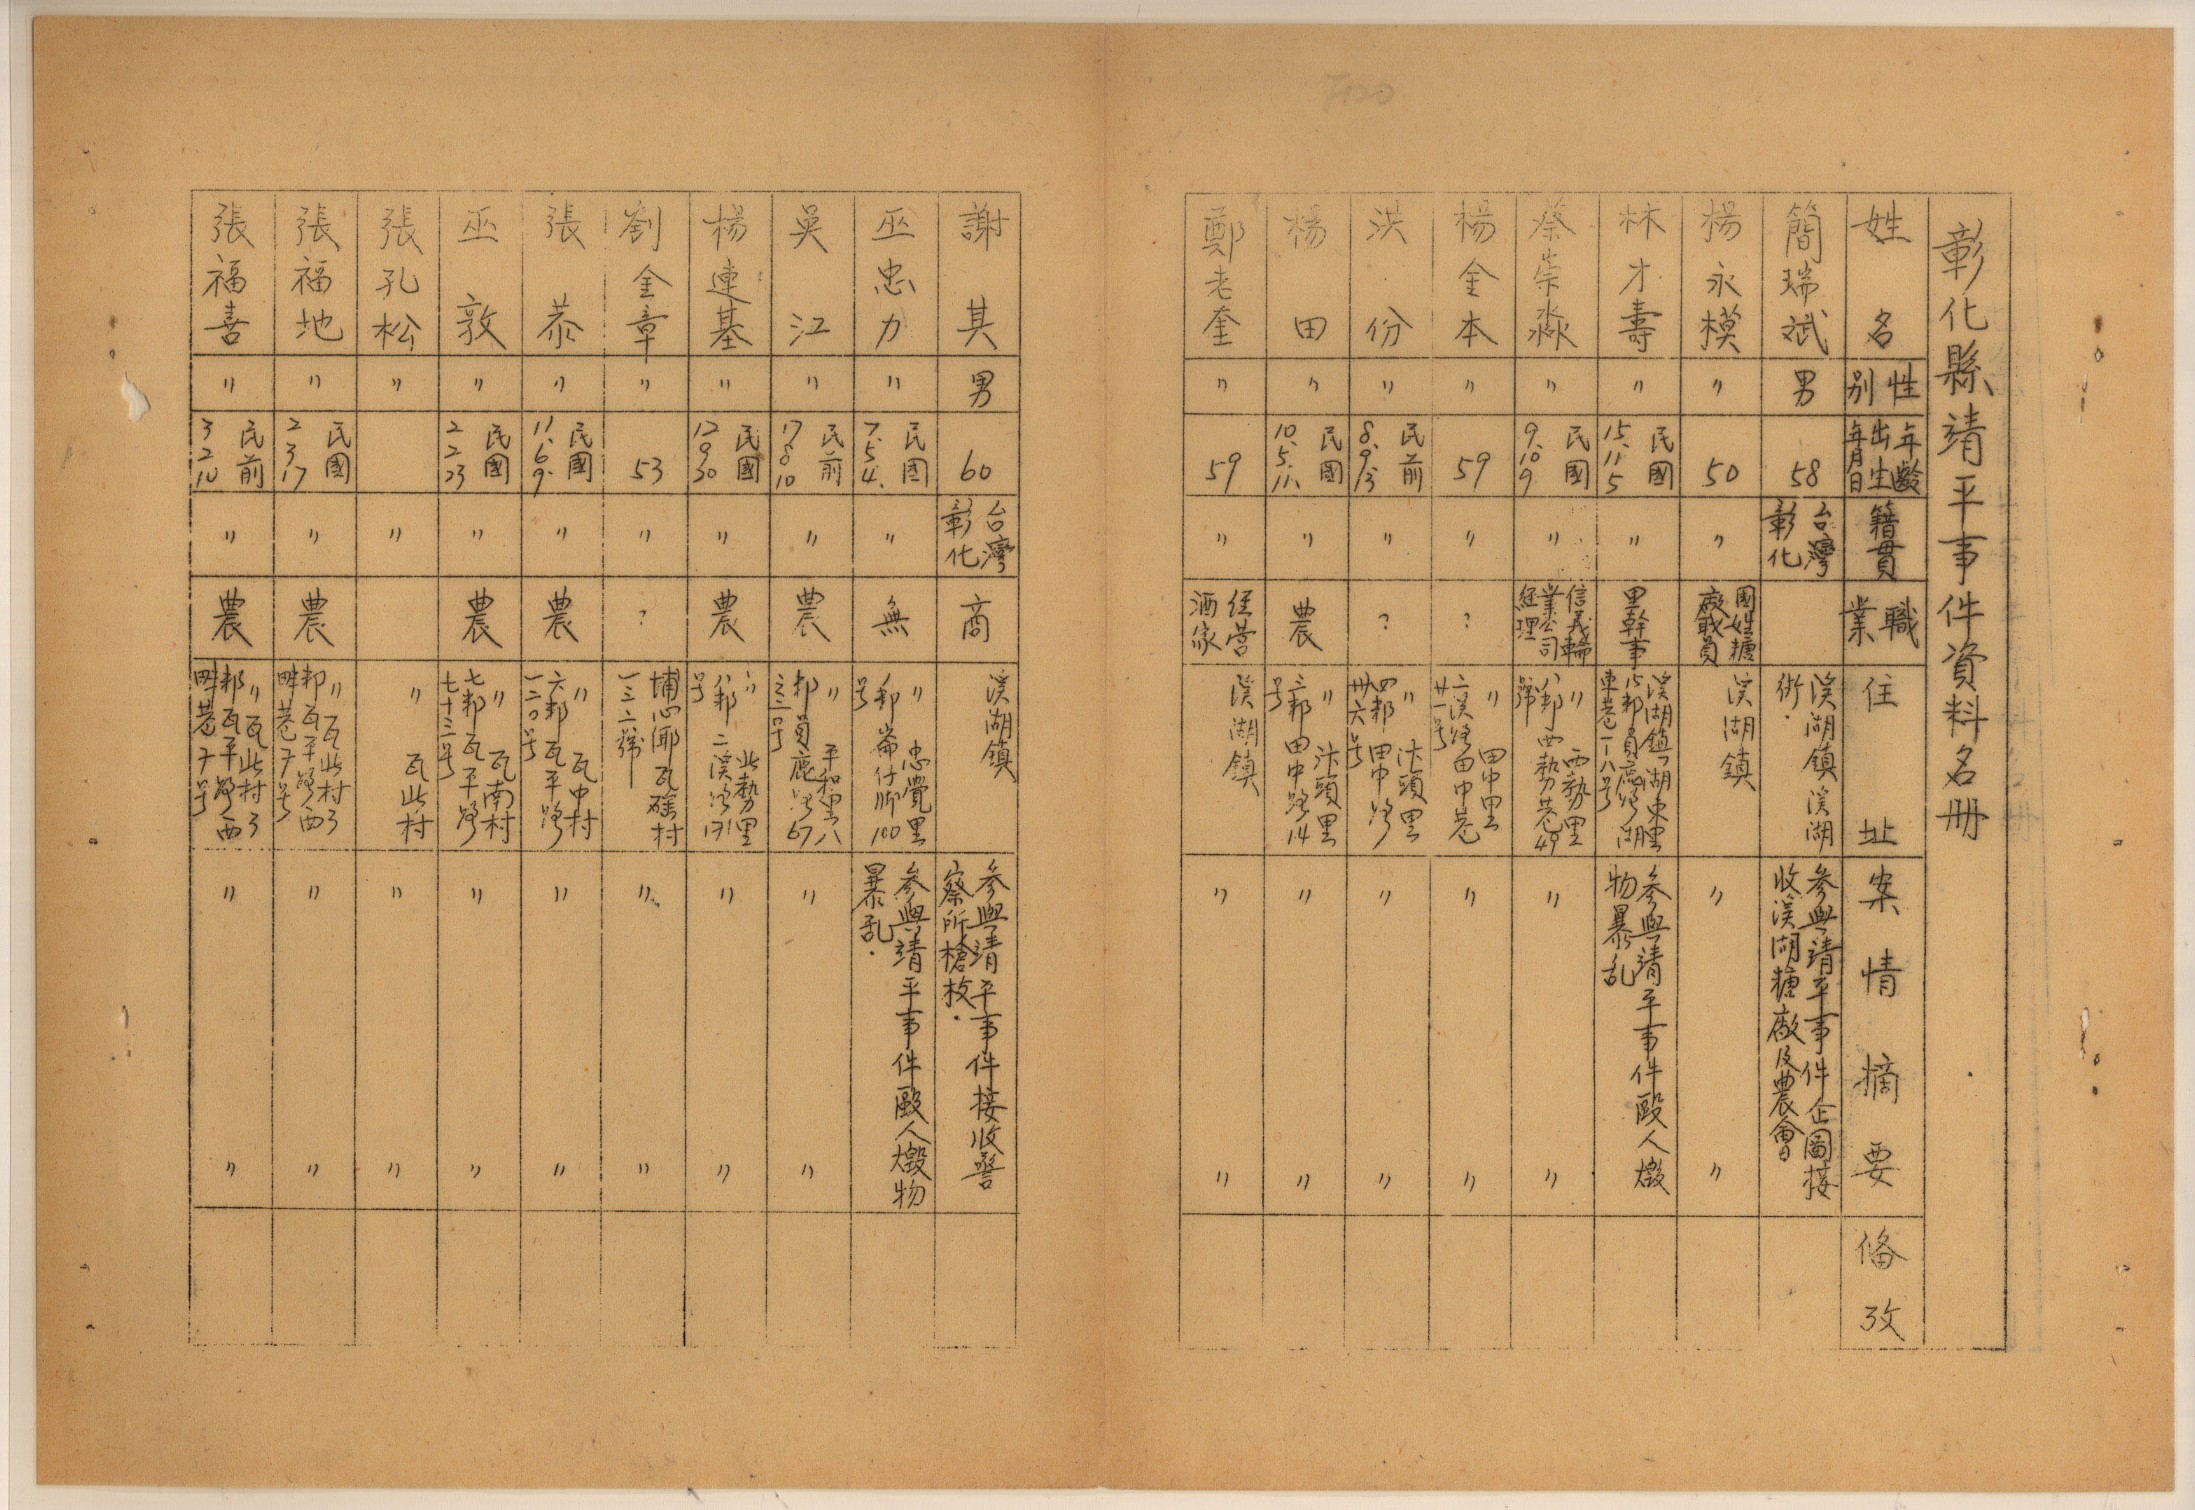 彰化縣靖平事件資料名冊
姓名 性別 年齡出生年月日 籍貫 職業 住址 案情摘要 備攷
簡瑞斌 男 58 台灣彰化 溪湖鎮溪湖街. 參與靖平事件企圖接收溪湖糖廠及農會
楊永模 〃 50 〃 國姓糖廠職員 溪湖鎮 〃 〃
林才壽 〃 民國15.11.5 〃 里幹事 溪湖鎮湖東里15邻員鹿路湖東巷一八号 參與靖平事件毆人燬物暴乱
蔡崇淼 〃 民國9.10.9 〃 信義輪業公司經理 〃西勢里八邻西勢巷49號 〃 〃
楊金本 〃 59 〃 ? 〃田中里二溪路田中巷廿一号 〃 〃
洪份 〃 民前8.9.13 〃 ? 〃汴頭里四邻田中路卅六号 〃 〃
楊田 〃 民國10.5.11. 〃 農 〃汴頭里三邻田中路14号 〃 〃
鄭老奎 〃 59 〃 经营酒家 溪湖鎮 〃 〃
謝其 男 60 台灣彰化 商 溪湖鎮 參與靖平事件接收警察所槍枝.
巫忠力 〃 民國7.5.4. 〃 無 〃忠覺里 邻崙仔脚100号 參與靖平事件毆人燬物暴乱.
吳江 〃 民前17.8.10 〃 農 〃平和里八邻員鹿路67之三号 〃 〃
楊連基 〃 民國12.9.30 〃 農 〃北勢里八邻二溪路171号 〃 〃
劉金章 〃 53 〃 ? 埔心鄉瓦磘村一三二號 〃 〃
張恭 〃 民國11.6.9. 〃 農 〃瓦中村六邻瓦平路一二〇号 〃 〃
巫敦 〃 民國2.2.23 〃 農 〃瓦南村七邻瓦平路七十三号 〃 〃
張孔松 〃 〃 〃瓦北村 〃 〃
張福地 〃 民國2.3.17 〃 農 〃瓦北村3邻瓦平路西畔巷7号 〃 〃
張福喜 〃 民前3.2.10 〃 農 〃瓦北村3邻瓦平路西畔巷7号 〃 〃